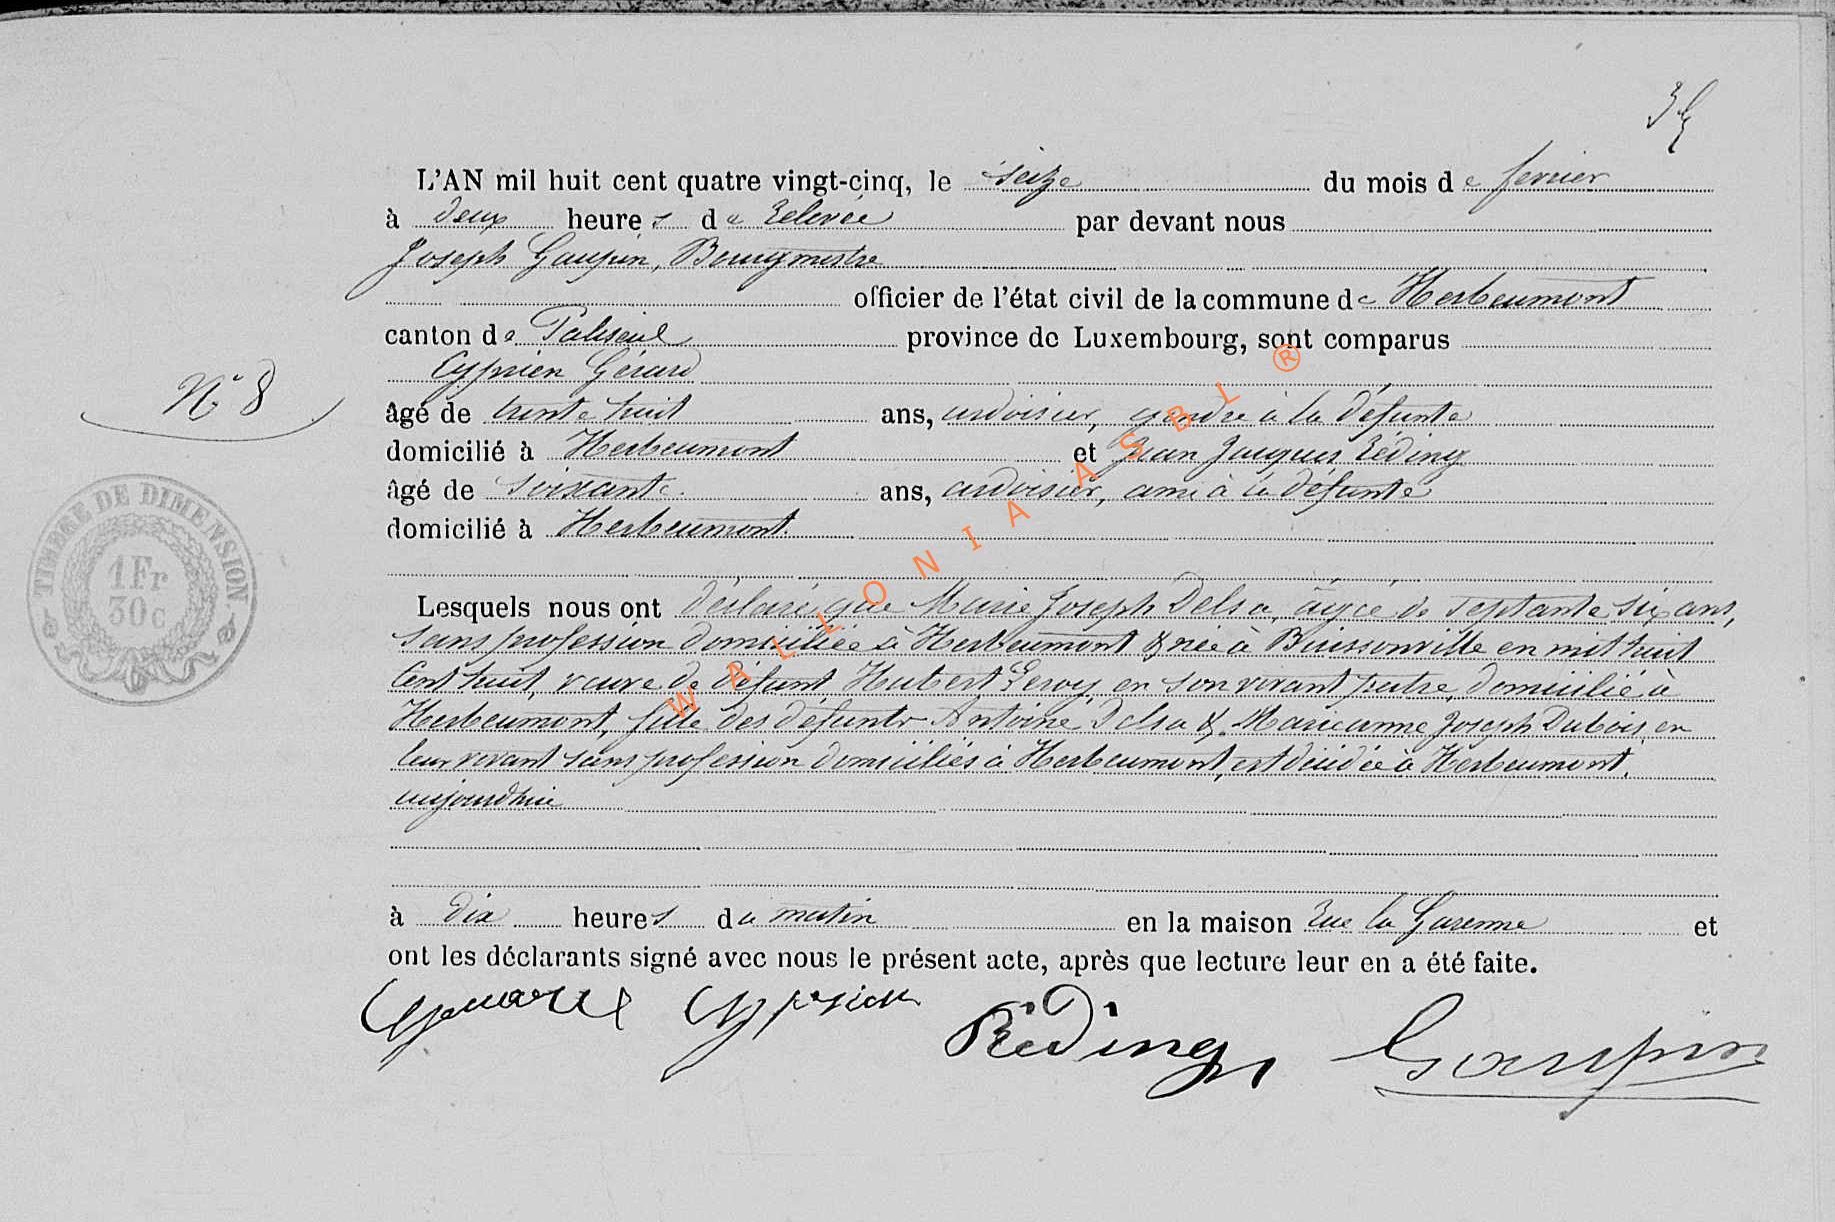 L'AN mil huit cent quatre vingt-cinq, le seize du mois de fevrier
à deux heures de relevée par devant nous
Joseph Gaupin, Bourgmestre
officier de l'état civil de la commune de Herbeumont
canton de Paliseul province de Luxembourg, sont comparus
Cyprien Gérard
N° 8
âgé de trente huit ans, ardoisier, gendre à la défunte
domicilié à Herbeumont et Jean Jacques Réding
âgé de soixante ans, ardoisier, ami à la défunte
domicilié à Herbeumont.
TIMBRE DE DIMENSION
1 Fr
30 c
Lesquels nous ont déclaré que Marie Joseph Delsa, âgée de septante six ans,
sans profession domiciliée à Herbeumont & née à Buissonville en mil huit
cent huit, veuve de défunt Hubert Leroy, en son vivant patre, domicilié à
Herbeumont, fille des défunts Antoine Delsa & Marieanne Joseph Dubois, en
leur vivant sans profession domiciliés à Herbeumont, est décédée à Herbeumont,
aujourdhui
à dix heures du matin en la maison rue la Garenne et
ont les déclarants signé avec nous le présent acte, après que lecture leur en a été faite.
Gerard Cyprien Réding Gaupin
WALLONIA ASBL ®